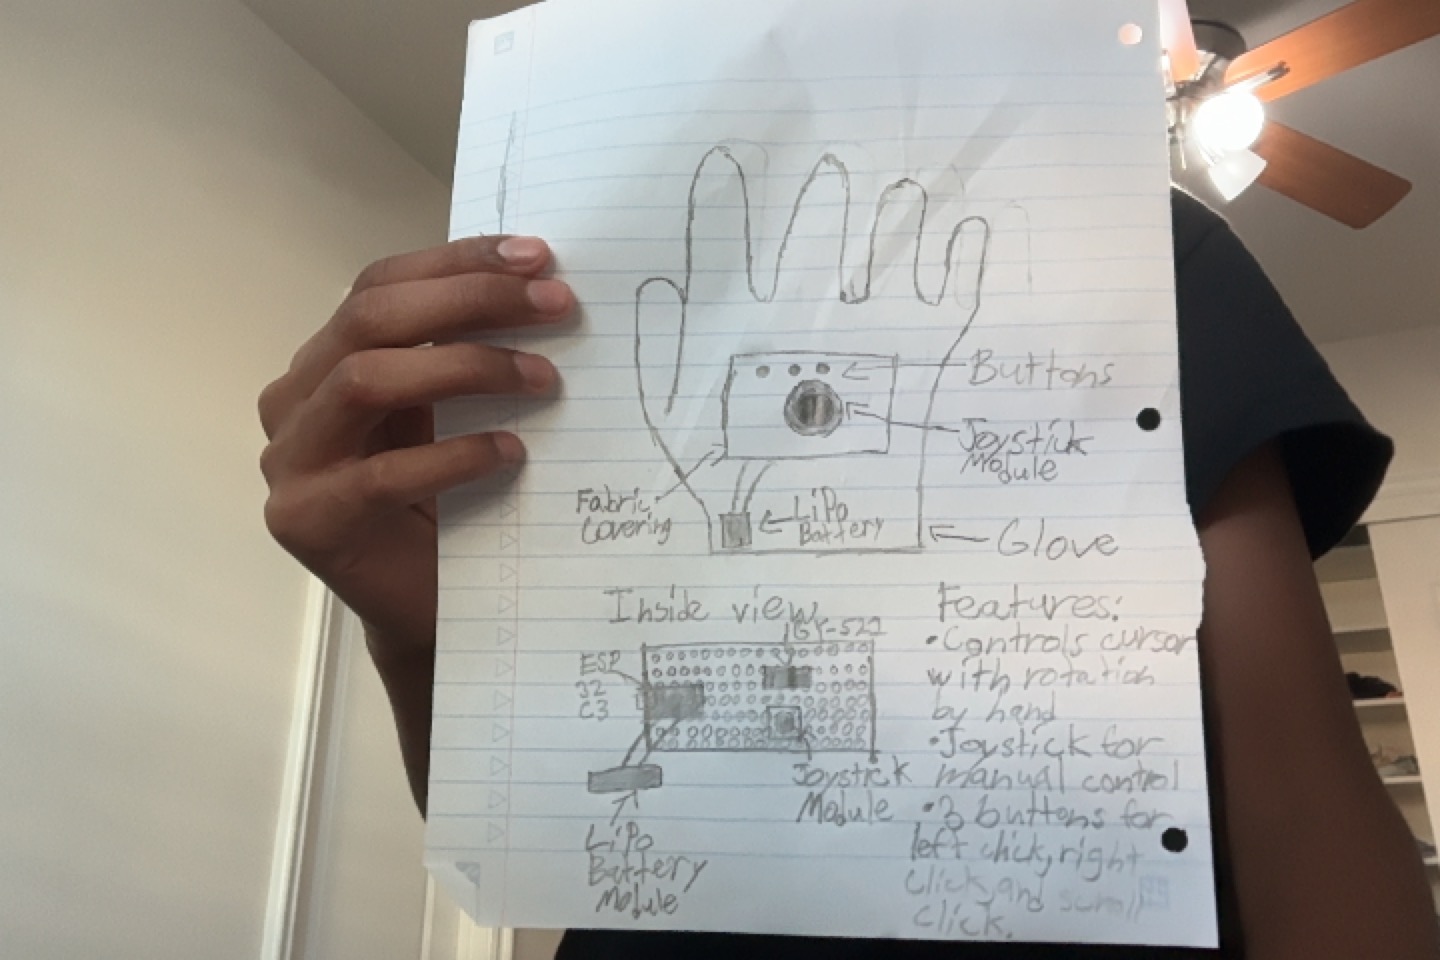 Buttons
Joystick
Module
Fabric
Covering
LiPo
Battery
Glove
Inside view
GY-521
ESP
32
C3
Joystick
Module
LiPo
Battery
Module
Features:
•Controls cursor
with rotation
by hand
•Joystick for
manual control
•3 buttons for
left click, right
click, and scroll
click.